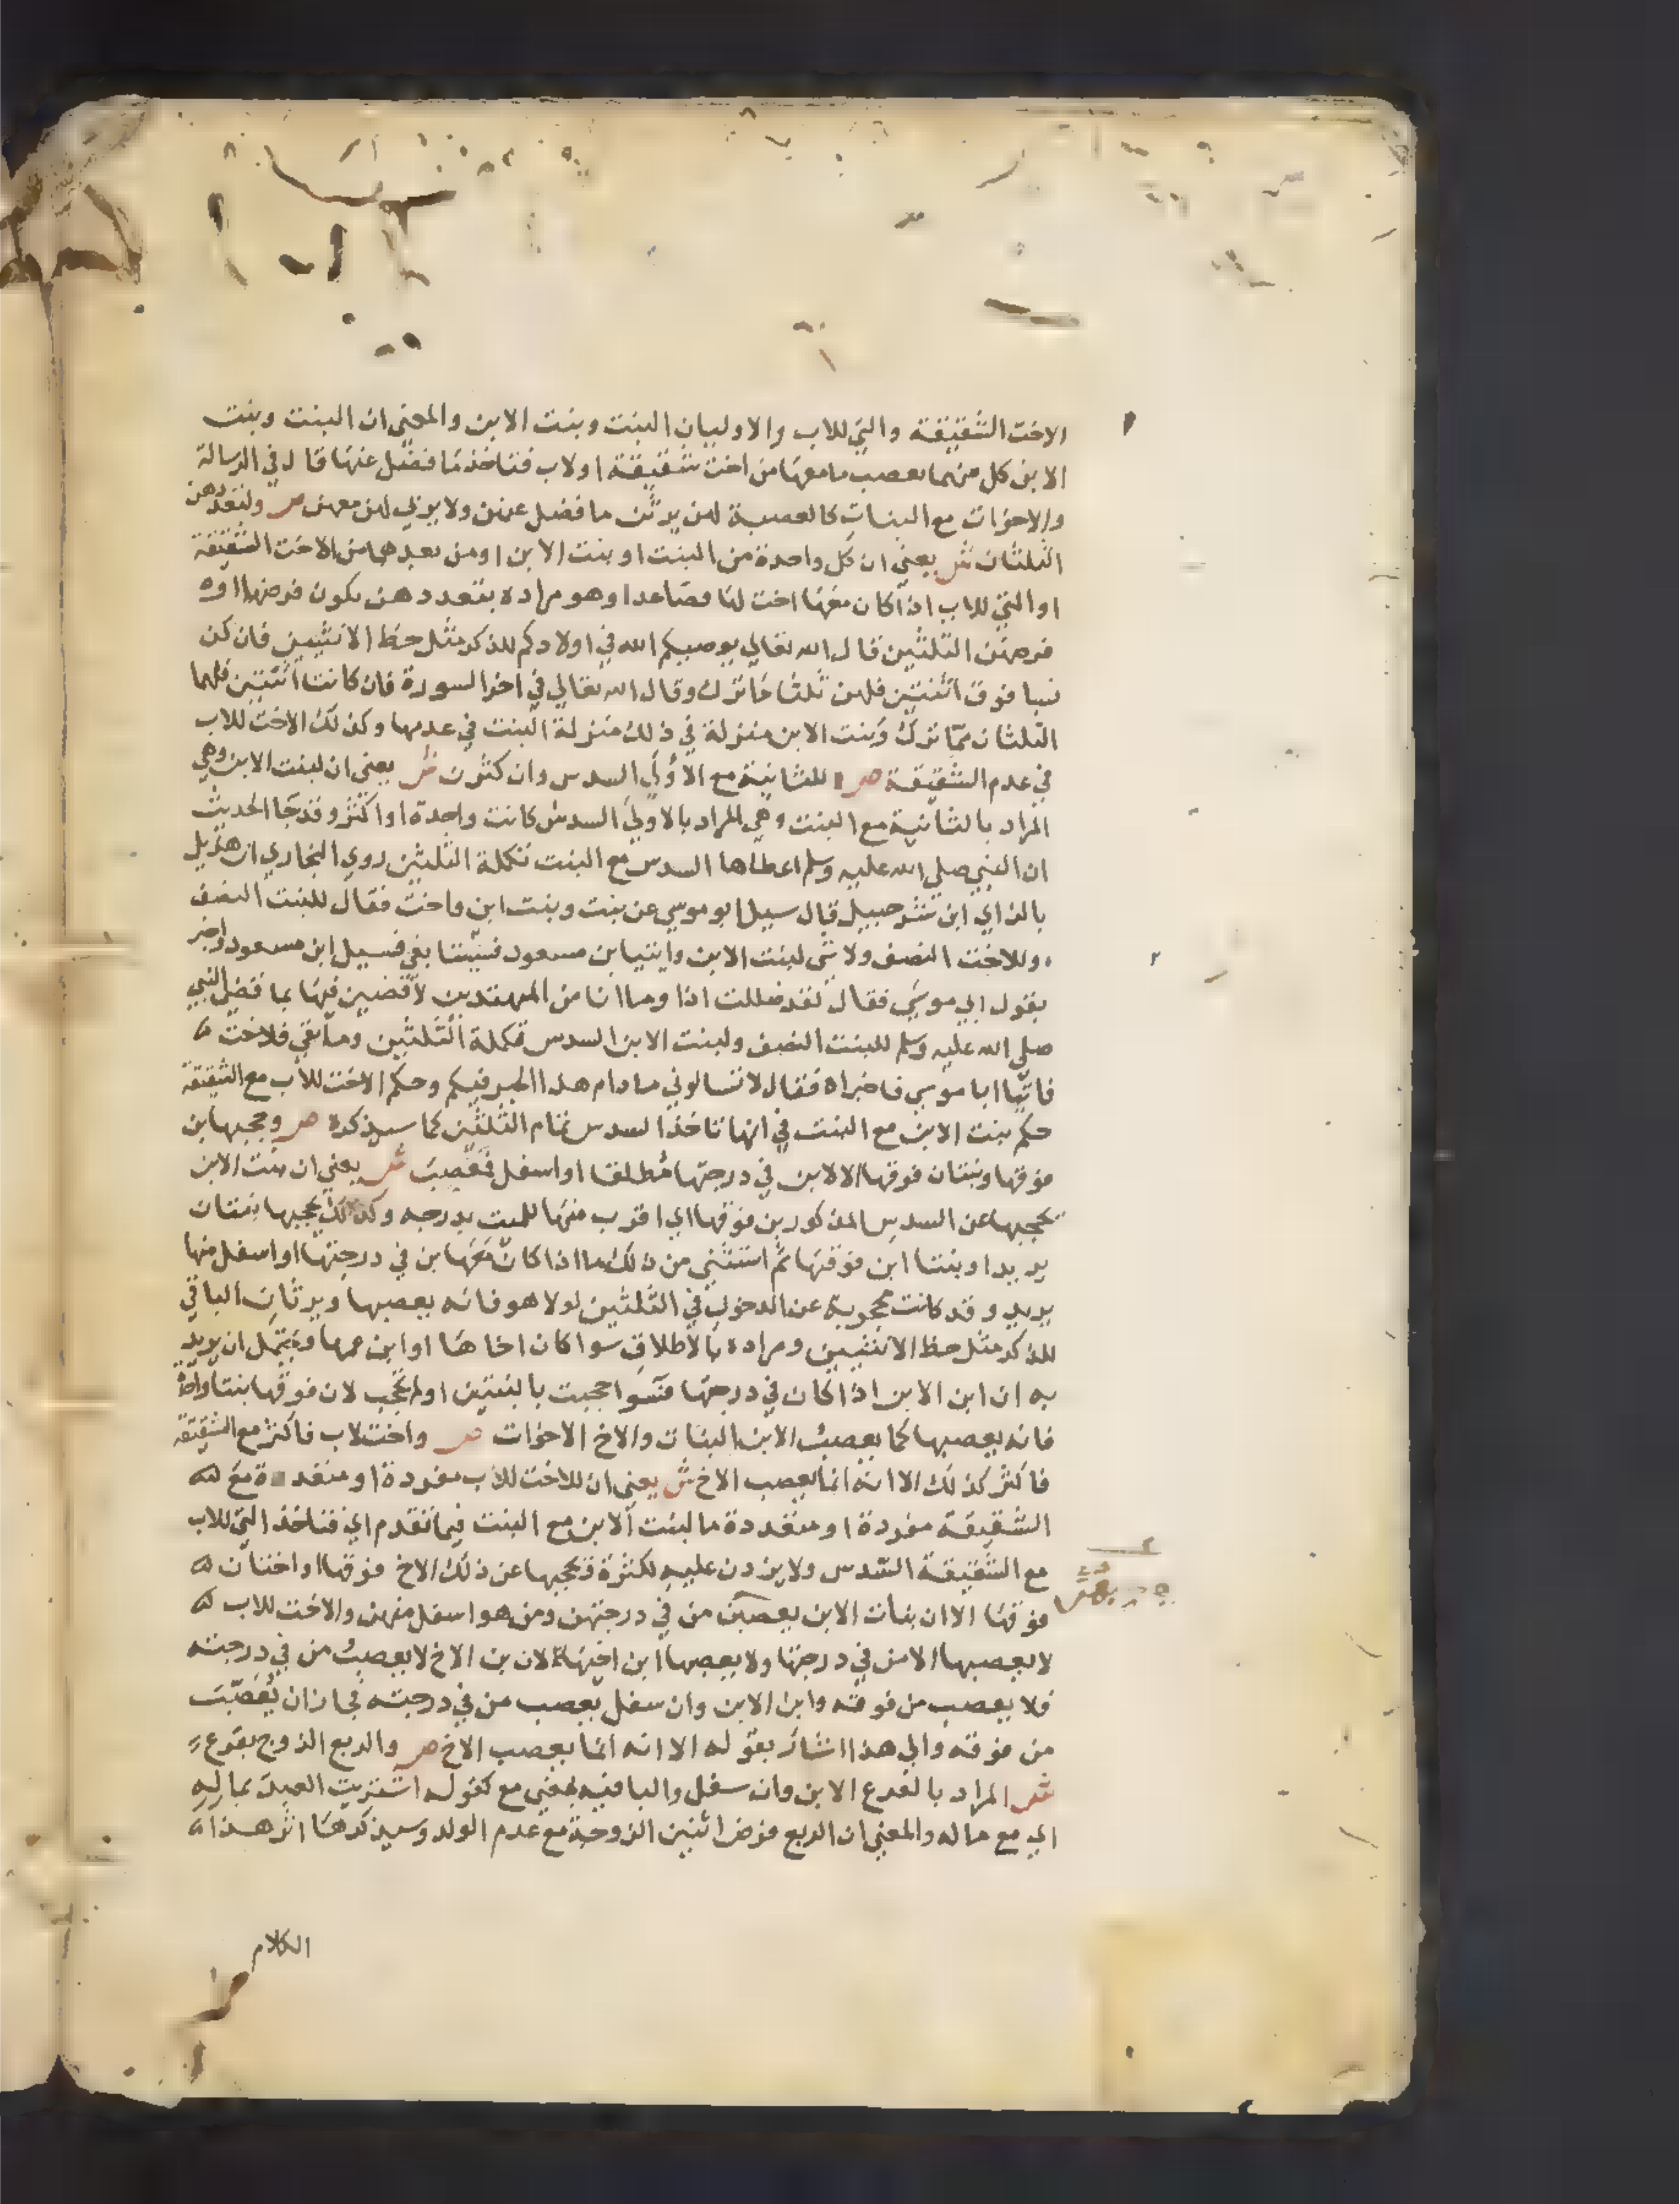 الاخت الشقيقة والتي للاب والاوليان البنت وبنت الابن والمعني ان البنت وبنت
الابن كل منهما يعصب ما معها من اخت شقيقة او لاب فتاخذ ما فضل عنها قال في الرسالة
والاخوات مع البنات كالعصبة لهن يرثن ما فضل عنهن ولا يربي لهن معهن ص ولتعددهن
الثلثان ش يعني ان كل واحدة من البنت او بنت الابن او من بعدهما من الاخت الشقيقة
او التي للاب اذا كان معها اخت لها فصاعدا وهو مراده بتعددهن يكون فرضهما او
فرضهن الثلثين قال الله تعالي يوصيكم الله في اولادكم للذكر مثل حظ الانثيين فان كن
نسا فوق اثنتين فلهن ثلثا ما ترك وقال الله تعالي في اخر السورة فان كانتا اثنتين فلهما
الثلثان مما ترك وبنت الابن منزلة في ذلك منزلة البنت في عدمها وكذلك الاخت للاب
في عدم الشقيقة ص للثانية مع الاولي السدس وان كثرن ش يعني ان لبنت الابن وهي
المراد بالثانية مع البنت وهي المراد بالاولي السدس كانت واحدة او اكثر وقد جا الحديث
ان النبي صلي الله عليه وسلم اعطاها السدس مع البنت تكملة الثلثين روي البخاري ان هزيل
بالزاي ابن شرحبيل قال سيل ابو موسي عن بنت وبنت ابن واخت فقال للبنت النصف
وللاخت النصف ولا شي لبنت الابن وايتيا بن مسعود فسيتا بعني فسيل ابن مسعود واخبر
بقول ابي موسي فقال لقد ضللت اذا وما انا من المهتدين لاقضين فيها بما قضي النبي
صلي الله عليه وسلم للبنت النصف ولبنت الابن السدس تكملة الثلثين وما بقي فلاخت
فاتيا ابا موسي فاخبراه فقال لا تسالوني ما دام هذا الحبر فيكم وحكم الاخت للاب مع الشقيقة
حكم بنت الابن مع البنت في انها تاخذ السدس تمام الثلثين كما سيذكره ص وحجبها ابن
فوقها وبنتان فوقها الا لابن في درجتها مطلقا او اسفل فمعصب ش يعني ان بنت الابن
يحجبها عن السدس المذكور بن فوقها اي اقرب منها للميت بدرجه وكذلك يحجبها بنتان
يريد او بنتا ابن فوقها ثم استثني من ذلك ما اذا كان معها بن في درجتها او اسفل منها
يريد وقد كانت محجوبة عن الدخول في الثلثين لولا هو فانه يعصبها ويرثان الباقي
للذكر مثل حظ الانثيين ومراده بالاطلاق سوا كان اخاها او ابن عمها ويحتمل ان يريد
به ان ابن الابن اذا كان في درجتها فسوا حجبت بالبنتين او لم تحجب لان فوقها بنتا واحدة
فانه يعصبها كما يعصب الابن البنات والاخ الاخوات ص واخت لاب فاكثر مع الشقيقة
فاكثر كذلك الا انه انما يعصب الاخ ش يعني ان للاخت للاب مفردة او متعددة مع
الشقيقة مفردة او متعددة ما لبنت الابن مع البنت فيما تقدم اي فتاخذ التي للاب
مع الشقيقة السدس ولا يزدن عليه لكثرة فيحجبها عن ذلك الاخ فوقها او اختان
فوقها الا ان بنات الابن يعصبهن من في درجتهن ومن هو اسفل منهن والاخت للاب
لا يعصبها الا من في درجتها ولا يعصبها ابن اخيها لان بن الاخ لا يعصب من في درجته
فلا يعصب من فوقه وابن الابن وان سفل يعصب من في درجته فجاز ان يعصب
من فوقه والي هذا اشار بقوله الا انه انما يعصب الاخ ص والربع الزوج بفرع
ش المراد بالفرع الابن وان سفل والبا فيه بمعني مع كقوله اشتريت العبد بماله
اي مع ماله والمعني ان الربع فرض اثنين الزوجة مع عدم الولد وسيذكرها اثر هذا
الكلام